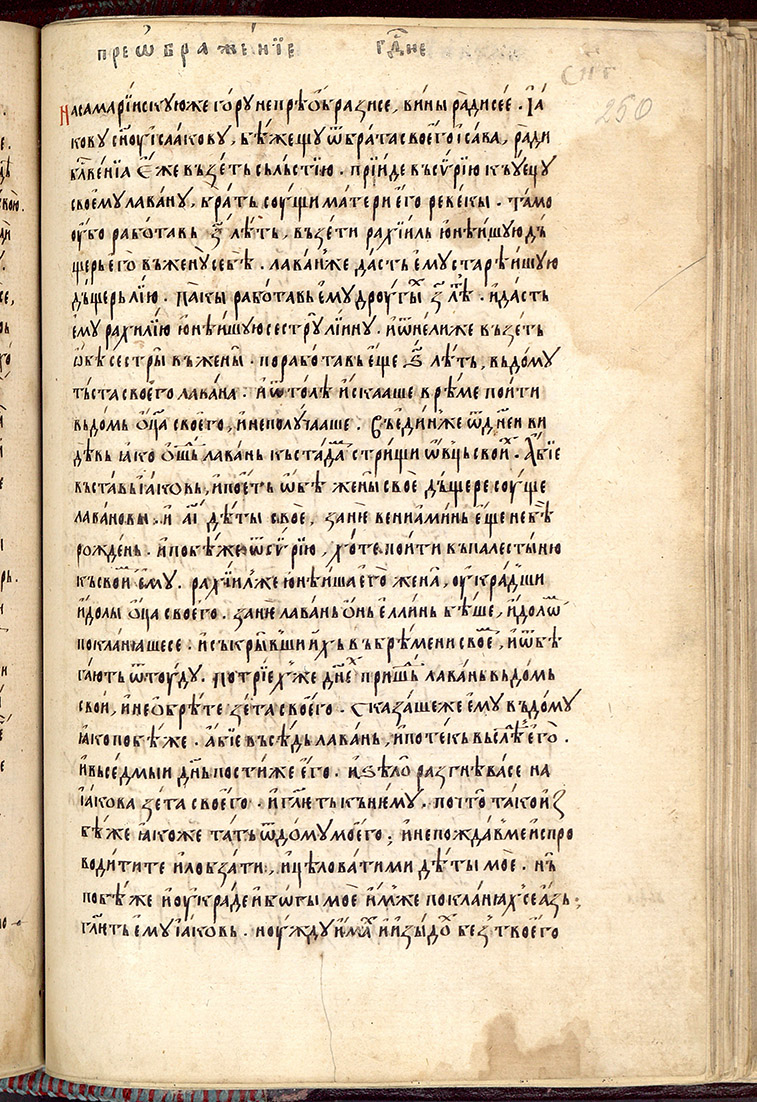 преѡбраже́нїе гдⷭ҇не
СНГ
250
На самарїискꙋю же го́рꙋ не прѣѡ́бразисе, ви́ны ра́ди сеѐ. І҆а́
ковꙋ сн҃оу і҆саа́ковꙋ, бѣ́жещꙋ ѿ бра́та своего̀ и҆са́ва, ра́ди
блⷭ҇ве́нїа є҆́же въ зе́ть съ лъсті́ю. прїи́де въ сѵ́рїю къ ꙋ́ецꙋ
своемꙋ̀ лава́нꙋ, бра́ть соущи ма́тери є҆го̀ реве́кы. та́мо
оу҆́бо рабо́тавь з҃ лѣ́ть, въ зети рахїиль ю҆нѣ́ишꙋю дъ́
щерь є҆го̀ въ женꙋ̀ себѣ̀. лава́н же да́сть є҆мꙋ̀ старѣ́ишꙋю
дъ́щерь лі́ю. па́кы рабо́тавь є҆мꙋ̀ дрꙋгы́ⷯ з҃ лѣⷮ. и҆ да́сть
є҆мꙋ̀ рахи́лїю ю҆нѣ́ишꙋю сестрꙋ̀ лі́инꙋ. и҆ ѿне́лиже въ зе́ть
ѡ҆бѣ̀ сестры̀ въ жены̀. порабо́тавь є҆ще з҃ лѣ́ть, въ до́мꙋ
тъ́ста своего̀ лава́на. и҆ ѿто́лѣ и҆скааше врѣ́ме пои́ти
въ до́мь ѻ҆ц҃а своего̀, и҆ не полꙋ́чааше. Въ еди́н же ѿ дне́и ви
дѣ́вь ꙗ҆́ко ѻ҆тшъⷣ лава́нь къ ста́даⷨ стрищи ѻ҆́вць свои́ⷯ. А҆бїе
въста́вь і҆а́ковь, и҆ пое́ть ѡ҆бѣ̀ жены̀ своѐ дъ́щере соу́ще
лава́новы. и҆ а҃і дѣ́ты своѐ, занѐ вениами́нь є҆ще не бѣ̀
рожде́нь. и҆ побѣ́же ѿ сѵ́рїю, хо́те пои́ти въ палесты́ню
къ свои́ⷨ є҆мꙋ. рахи́ил же ю҆нѣ́иша є҆го̀ жена̀, оу҆кра́дши
и҆́долы ѻ҆ц҃а своего̀. занѐ лава́нь ѻ҆́нь є҆́ллинь бѣ́ше, и҆́долѡⷨ
покланꙗ́шесе. и҆ съкры́вши и҆́хъ въ брѣ́мени своеⷨ, и҆ ѿбѣ
га́ють ѿтоу́дꙋ. по трїе́х же дне́ⷯ прише́ⷣ лава́нь въ до́мь
свои, и҆ не ѻ҆брѣ́те зе́та своего̀. Сказа́ше же є҆мꙋ въ до́мꙋ
ꙗ҆́ко побѣ́же. а҆́бїе въсѣ́дь лава́нь, и҆ поте́къ въ слѣ́ⷣ є҆го̀.
и҆ въ се́дмыи дн҃ь пости́же є҆го̀. и҆ ѕѣлѡ̀ разгнѣ́васе на
і҆а́кова зе́та своего̀. и҆ гл҃еть къ не́мꙋ. почто̀ та́ко и҆з
бѣ́же ꙗ҆́коже та́ть ѿ до́мꙋ моего̀; и҆ не пожда́в ме и҆спро
води́ти те и҆ лобза́ти, и҆ цѣлова́ти ми дѣ́ты моѐ. нѫ̀
побѣ́же и҆ оу҆кра́де и҆ бо́гы моѐ и҆́мже покланꙗ́х се а҆́зь;
гл҃еть є҆мꙋ̀ і҆а́ковь. ноу́ждꙋ и҆ма́ⷯ и҆ и҆зыдо́ⷯ без твоего